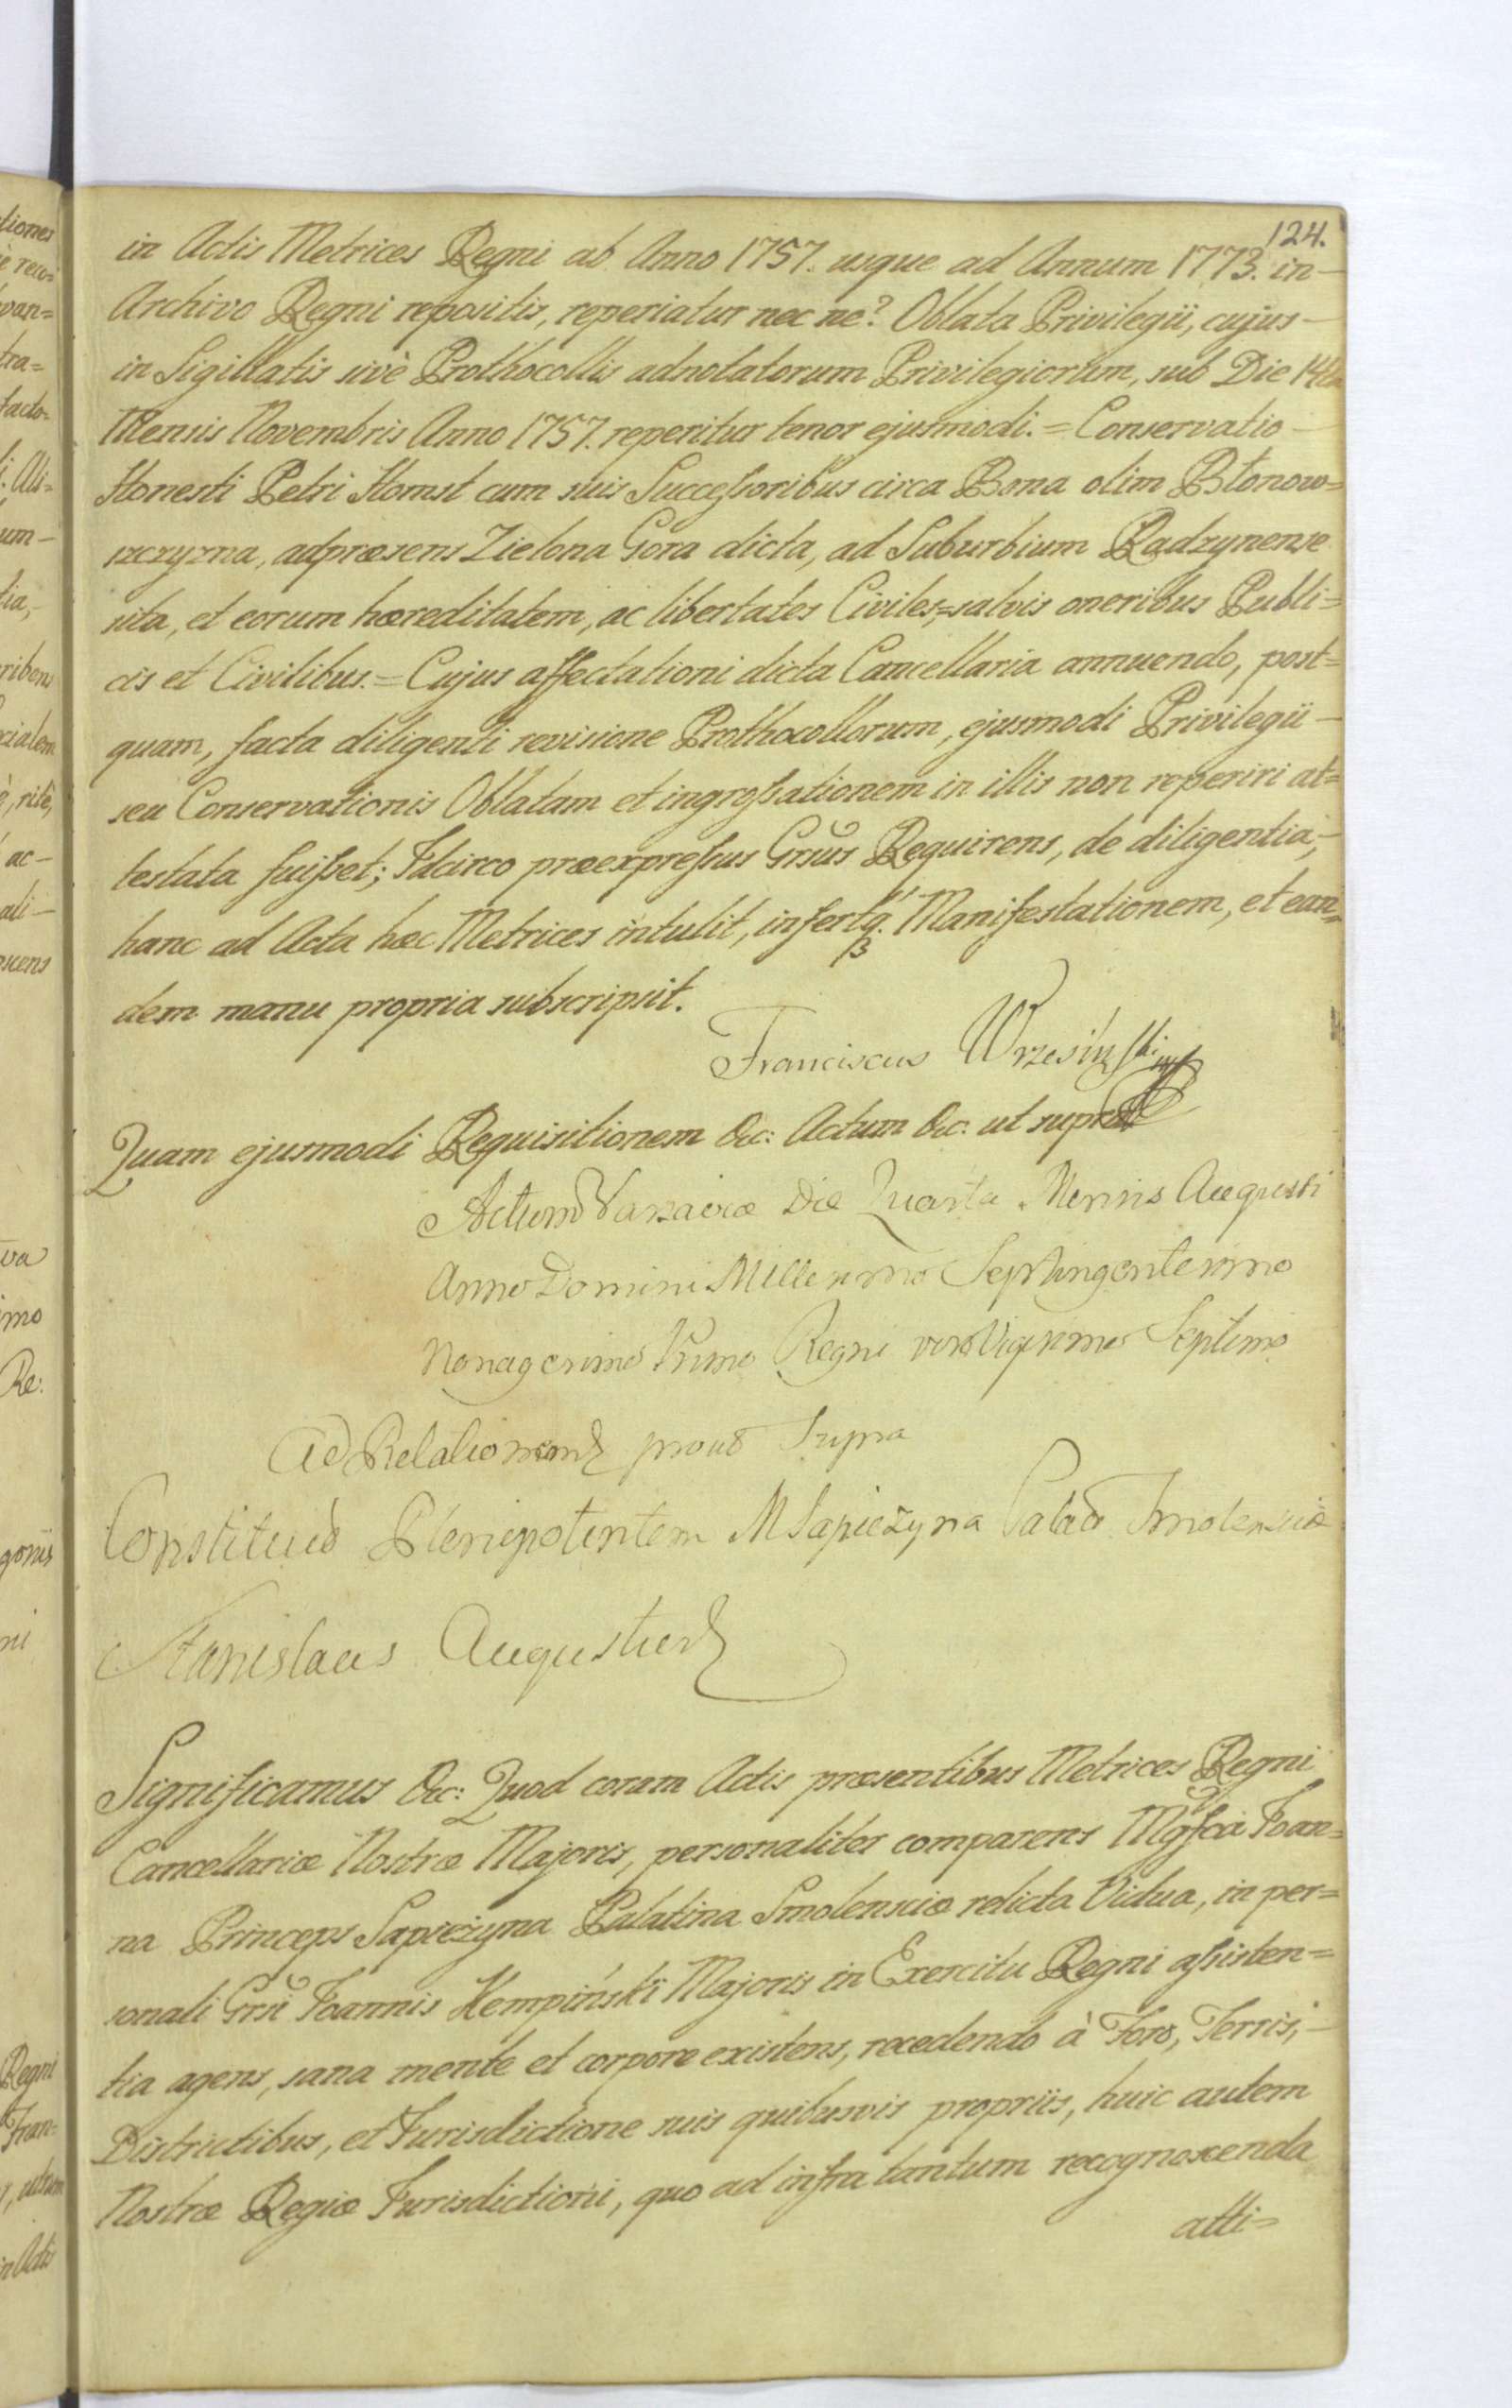 124.
in Actis Metrices Regni ab Anno 1757. usque ad Annum 1773. in-
Archivo Regni repositis, reperiatur nec ne? Oblata Privilegii, cujus-
in Sigillatis sivè Prothocollis adnotatorum Privilegiorum, sub Die 14ta
Mensis Novembris Anno 1757. reperitur tenor ejusmodi. = Conservatio-
Honesti Petri Homst cum suis Successoribus circa Bona olim Błonow=
szczyzna, adpræsens Zielona Gora dicta, ad Suburbium Radzynense
sita, et eorum hæreditatem, ac libertates Civiles,=salvis oneribus Publi=
cis et Civilibus.= Cujus affectationi dicta Cancellaria annuendo, post=
quam, facta diligenti revisione Prothocollorum, ejusmodi Privilegii-
seu Conservationis Oblatam et ingrossationem in illis non reperiri at=
testata fuisset; Idcirco præexpressus Grsus Requirens, de diligentia,-
hanc ad Acta hæc Metrices intulit, Manifestationem, et ean=
dem manu propria subscripsit.
Franciscus Wrzesiński
Quam ejusmodi Requisitionem &c: Actum &c. ut supra
Actum Varsaviæ Die Quarta Mensis Augusti
Anno Domini Millesimo Septingentesimo
Nonagesimo Primo Regni vero Vigesimo Septimo
Ad Relationem prout Supra
Constituit Plenipotentem M Sapieżyna Palat Smolensciæ
Stanislaus Augustus
Significamus &c: Quod coram Actis præsentibus Metrices Regni
Cancellariæ Nostræ Majoris, personaliter comparens Mgfca Joan=
na Princeps Sapieżyna Palatina Smolensciæ relicta Vidua, in per=
sonali Grsi Joannis Kempiński Majoris in Exercitu Regni assisten=
tia agens, sana mente et corpore existens, recedendo à Foro, Terris,-
Districtibus, et Jurisdictione suis quibusvis propriis, huic autem
Nostræ Regiæ Jurisdictioni, quo ad infra tantum recognoscenda
atti=